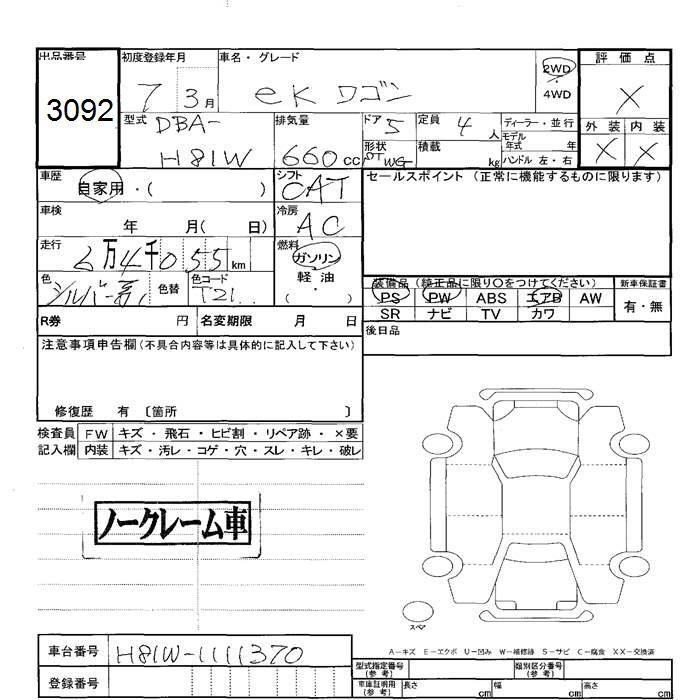 出品番号 初度登録年月 車名・グレード 2WD 評価点
3092 7 3月 ekワゴン ・ 4WD X
型式 DBA- 排気量 ドア 5 定員 4人 ディーラー・並行 外装 内装
H81W 660cc 形状 WG 積載 kg モデル年式 年 X X
ハンドル 左・右
車歴 自家用・( ) シフト CAT セールスポイント (正常に機能するものに限ります)
車検 年 月( 日) 冷房 AC
走行 6万4千055km 燃料 ガソリン
軽油
・( )
色 シルバー系 色替 色コード T21
装備品 (純正品に限り○をつけてください) 新車保証書
PS PW ABS エアB AW 有・無
SR ナビ TV カワ
R券 円 名変期限 月 日 後日品
注意事項申告欄(不具合内容等は具体的に記入して下さい)
修復歴 有 〔箇所 〕
検査員 FW キズ・飛石・ヒビ割・リペア跡・×要
記入欄 内装 キズ・汚レ・コゲ・穴・スレ・キレ・破レ
ノークレーム車
スペア
A-キズ E-エクボ U-凹み W-補修跡 S-サビ C-腐食 XX-交換済
車台番号 H81W-1111370
登録番号
型式指定番号(参考) 類別区分番号(参考)
車庫証明用(参考) 長さ cm 幅 cm 高さ cm